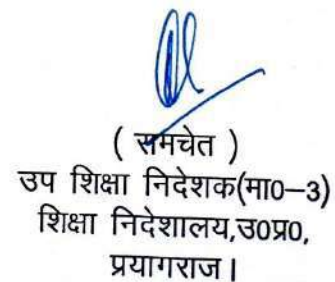 ( समचेत )
उप शिक्षा निदेशक(मा0-3)
शिक्षा निदेशालय,उ0प्र0,
प्रयागराज।